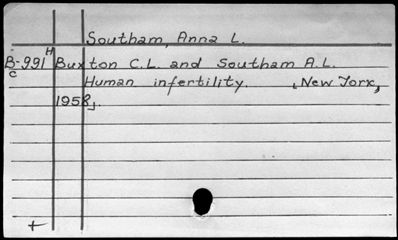 Southam, Anna L.
H
B-991 Buxton C.L. and Southam A.L.
c
Human infertility. [New York,
1958].
+